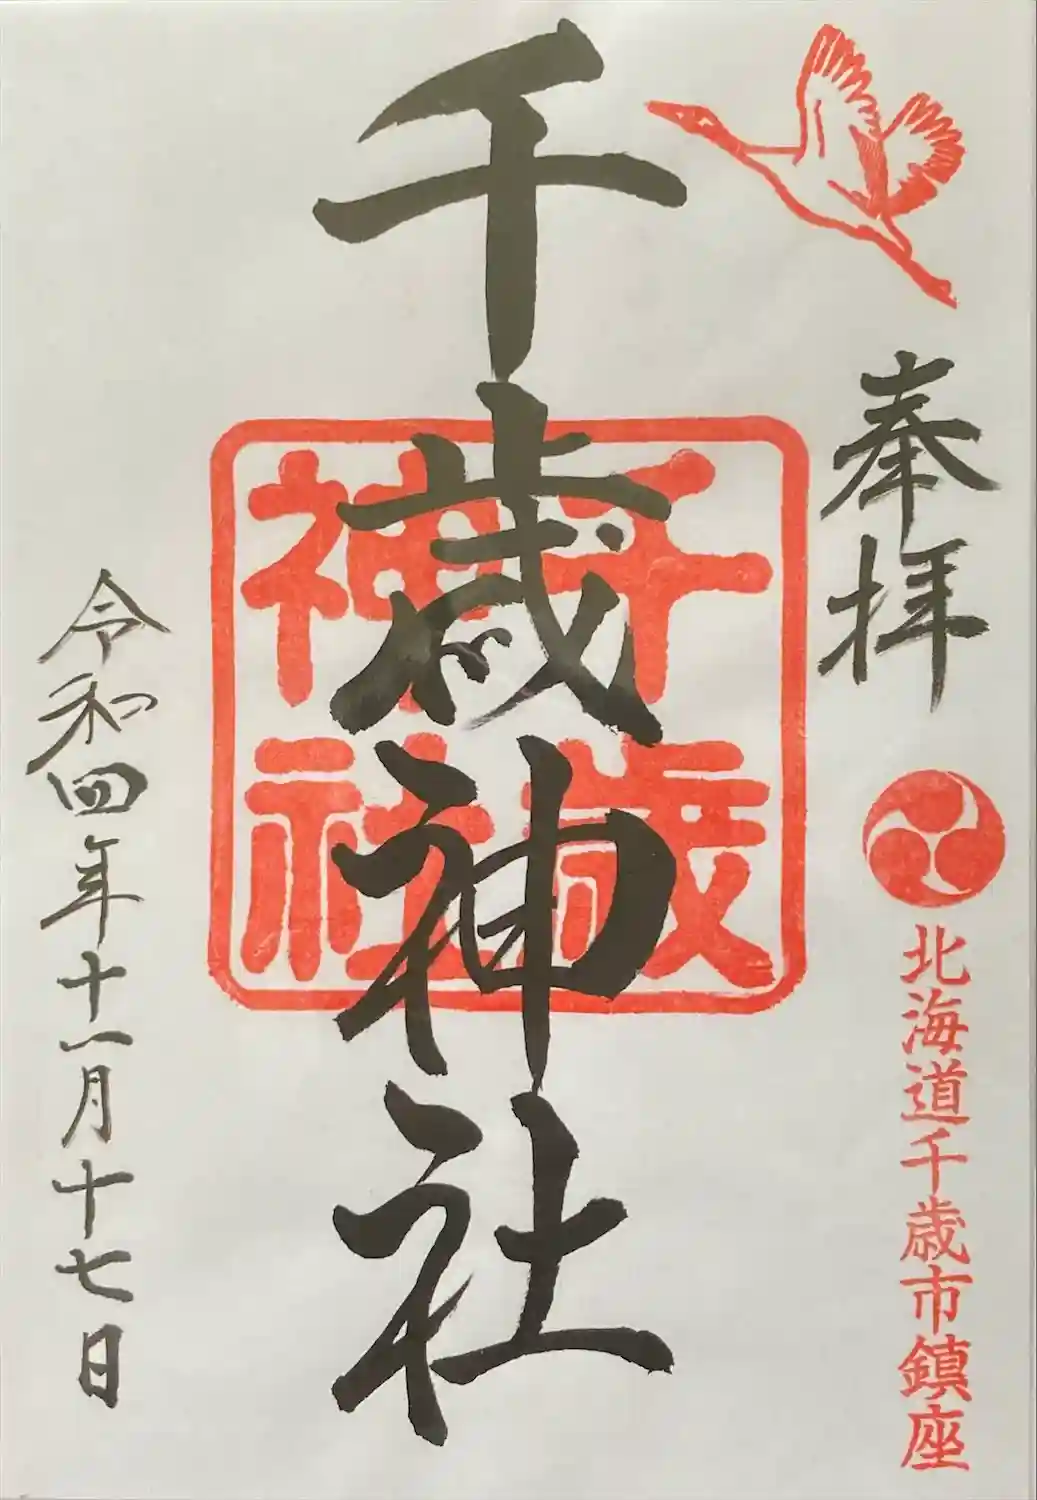 奉拝
北海道千歳市鎮座
千歳神社
千歳
神社
令和四年十一月十七日